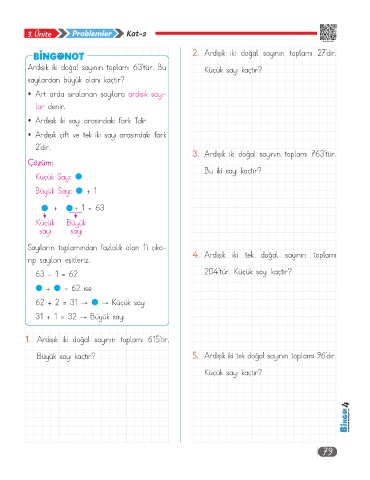 3. Ünite Problemler Kat-2
BİNGONOT
Ardışık iki doğal sayının toplamı 63'tür. Bu
sayılardan büyük olanı kaçtır?
• Art arda sıralanan sayılara ardışık sayı-
lar denir.
• Ardışık iki sayı arasındaki fark 1'dir.
• Ardışık çift ve tek iki sayı arasındaki fark
2'dir.
Çözüm:
Küçük Sayı:
Büyük Sayı: + 1
+ + 1 = 63
Küçük Büyük
sayı sayı
Sayıların toplamından fazlalık olan 1'i çıka-
rıp sayıları eşitleriz.
63 - 1 = 62
+ = 62 ise
62 ÷ 2 = 31 → → Küçük sayı
31 + 1 = 32 → Büyük sayı
1. Ardışık iki doğal sayının toplamı 615'tir.
Büyük sayı kaçtır?
2. Ardışık iki doğal sayının toplamı 27'dir.
Küçük sayı kaçtır?
3. Ardışık iki doğal sayının toplamı 763'tür.
Bu iki sayı kaçtır?
4. Ardışık iki tek doğal sayının toplamı
204'tür. Küçük sayı kaçtır?
5. Ardışık iki tek doğal sayının toplamı 96'dır.
Küçük sayı kaçtır?
BİNGO 4
79